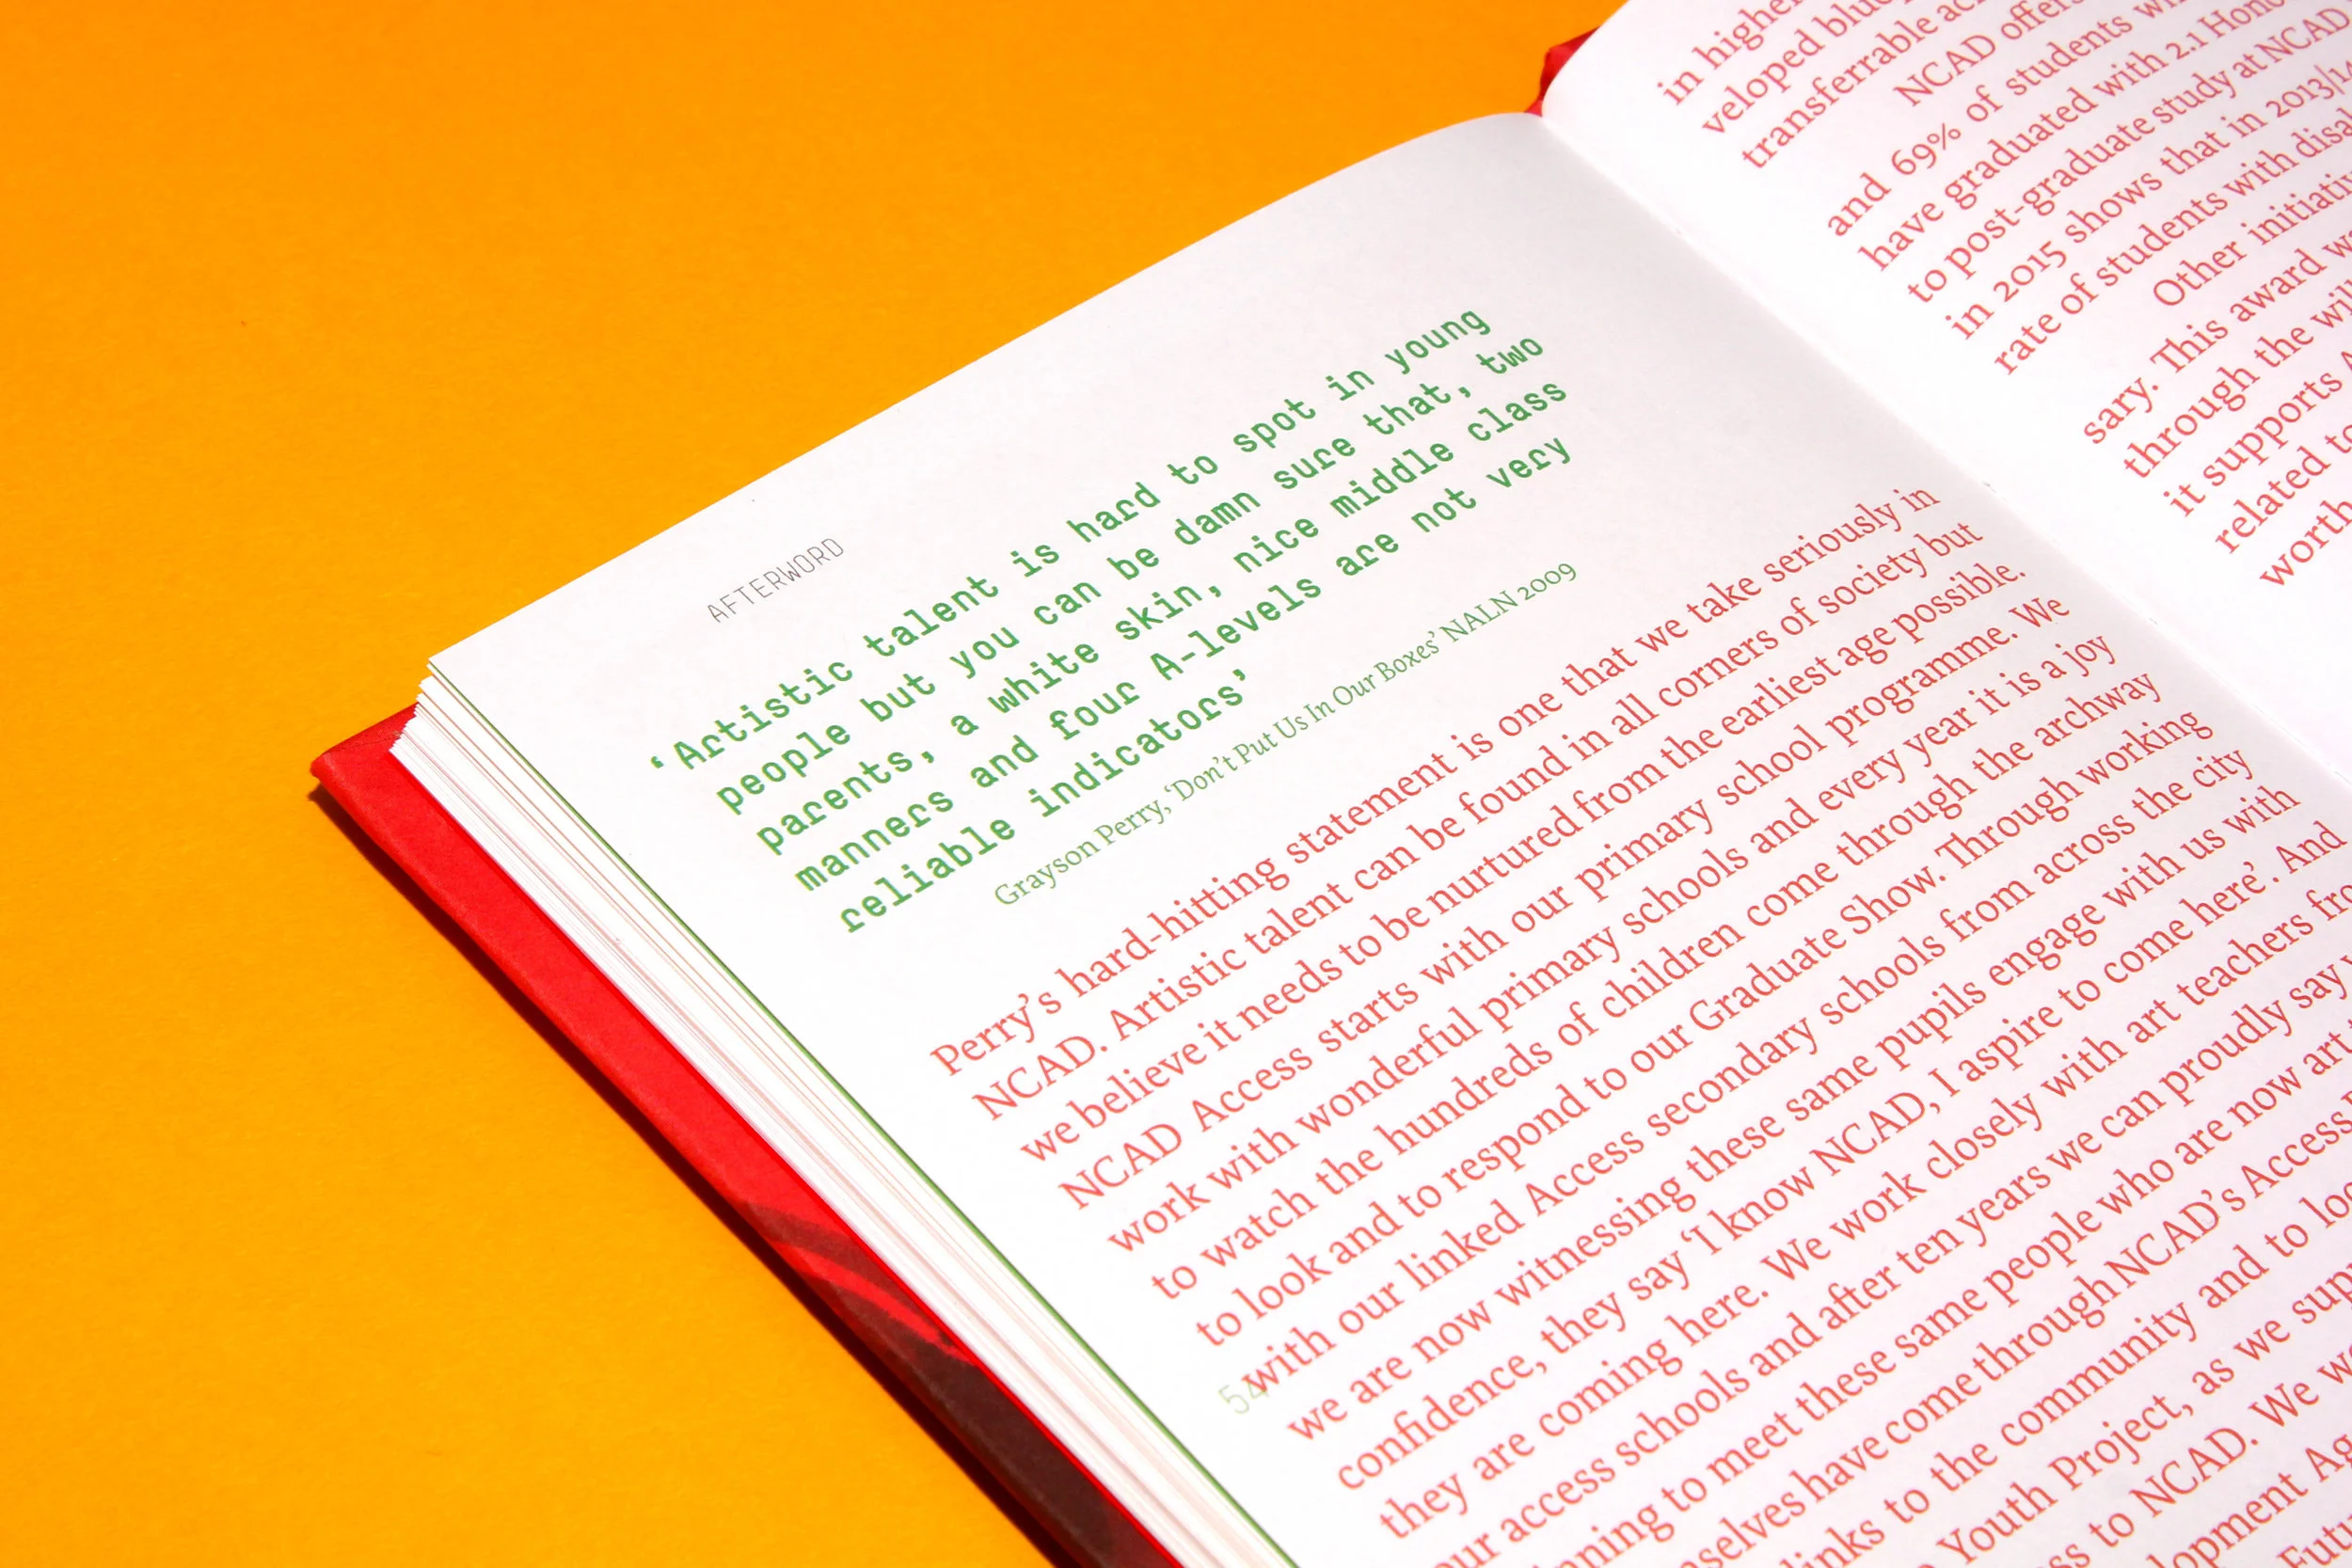 AFTERWORD
‘Artistic talent is hard to spot in young
people but you can be damn sure that, two
parents, a white skin, nice middle class
manners and four A-levels are not very
reliable indicators’
Grayson Perry, ‘Don’t Put Us In Our Boxes’ NALN 2009
Perry’s hard-hitting statement is one that we take seriously in
NCAD. Artistic talent can be found in all corners of society but
we believe it needs to be nurtured from the earliest age possible.
NCAD Access starts with our primary school programme. We
work with wonderful primary schools and every year it is a joy
to watch the hundreds of children come through the archway
to look and to respond to our Graduate Show. Through working
with our linked Access secondary schools from across the city
we are now witnessing these same pupils engage with us with
confidence, they say ‘I know NCAD, I aspire to come here’. And
they are coming here. We work closely with art teachers
our access schools and after ten years we can proudly say
to meet these same people who are now art
have come through NCAD’s Access
links to the community and to
Youth Project, as we
to NCAD. We
54
in higher
veloped
transferrable
NCAD offers
and 69% of students
have graduated with 2.1
to post-graduate study at NCAD
in 2015 shows that in 2013/14
rate of students with
Other
sary. This award
through the
it supports
related to
worth